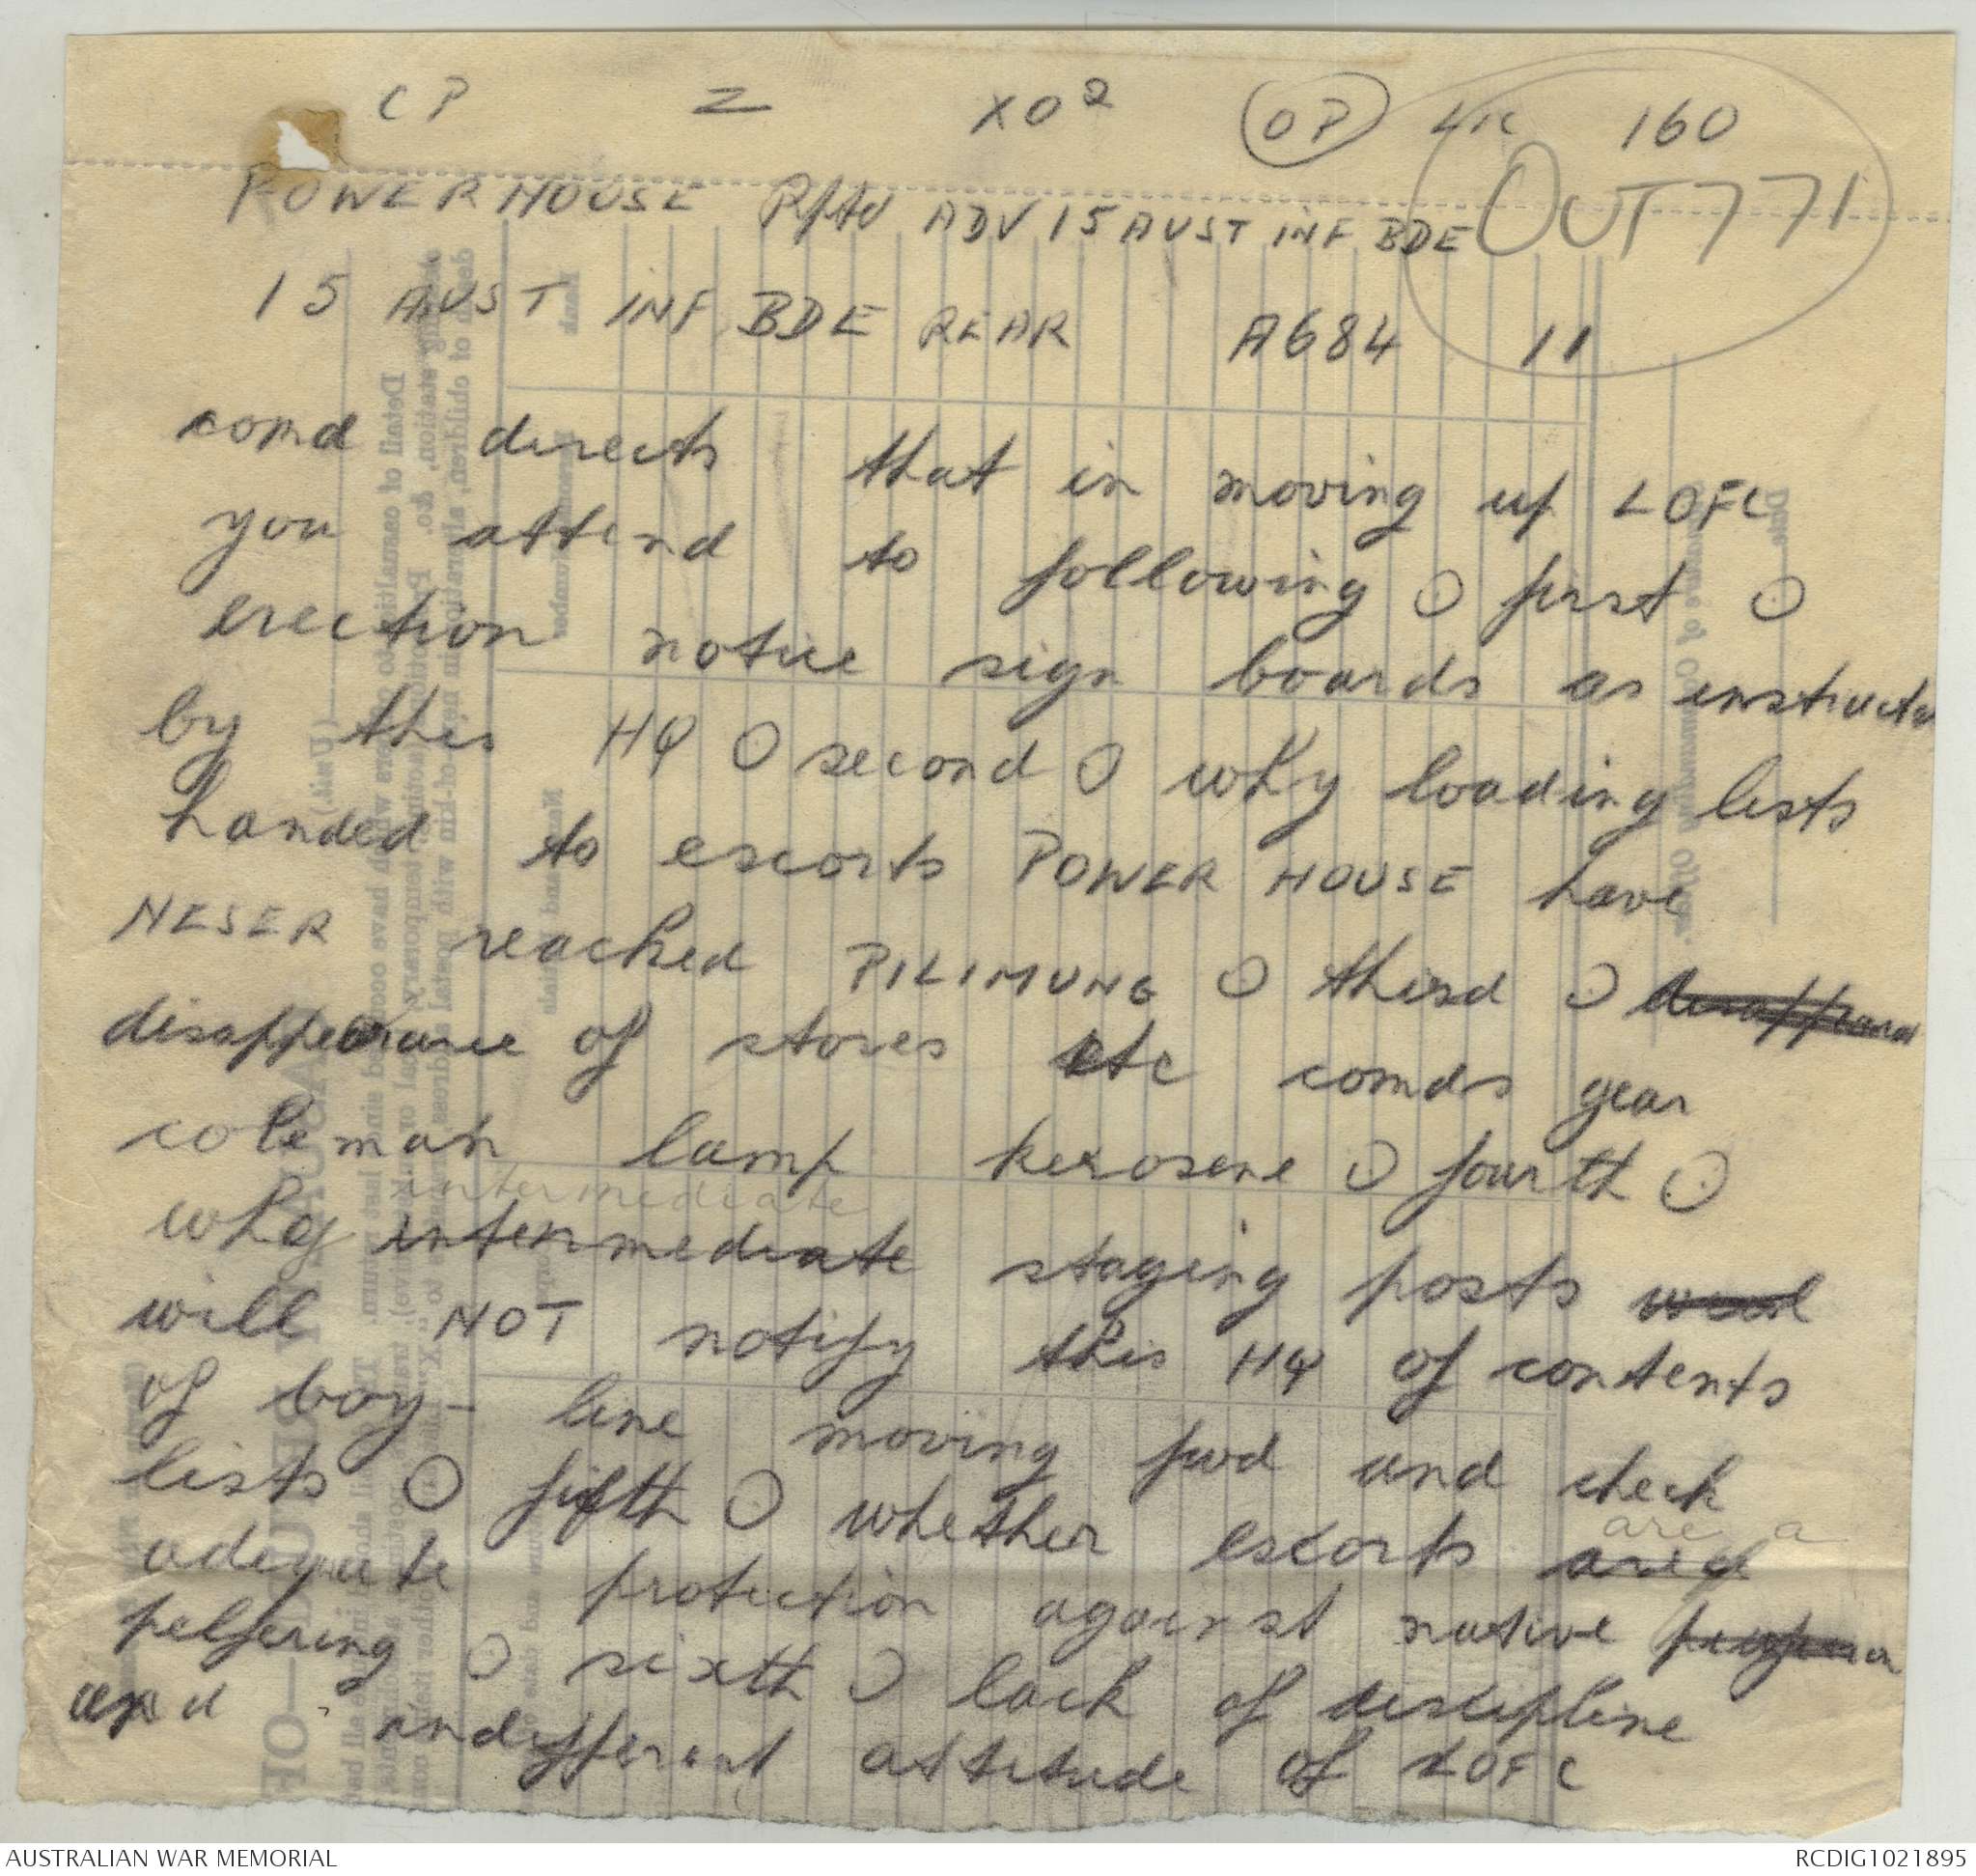 CP Z XO2 OP 160
OUT 771
POWER HOUSE ADV 15 AUST INF BDE
15 AUST INF BDE REAR A684 11
comd directs that in moving up LOFC
you attend to following O first O
erection notice sign boards as instructed
by this HQ O second O why loading lists
handed to escorts POWER HOUSE have
NESER reached PILIMUNG O third O disappeara
disappearance of stores etc comds gear
coleman lamp kerosene O fourth O
intermediate
why intermediate staging posts
will NOT notify this HQ of contents
of boy-line moving fwd and check
lists O fifth O whether escorts
are a
adequate protection against native
pelfering O sixth O lack of discipline
and indifferent attitude of LOFC
AUSTRALIAN WAR MEMORIAL
RCDIG1021895